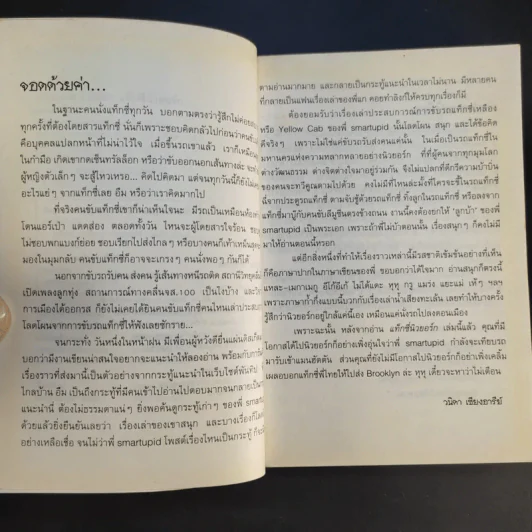 จอดด้วยค่า...
ในฐานะคนนั่งแท็กซี่ทุกวัน บอกตามตรงว่ารู้สึกไม่ค่อย
ทุกครั้งที่ต้องโดยสารแท็กซี่ นั่นก็เพราะชอบคิดกลัวไปก่อนว่าคนขับ
คือบุคคลแปลกหน้าที่ไม่น่าไว้ใจ เมื่อขึ้นรถเขาแล้ว เราก็เหมือน
ในกำมือ เกิดเขากดเซ็นทรัลล็อก หรือว่าขับออกนอกเส้นทางล่ะ
ผู้หญิงตัวเล็กๆ จะสู้ไหวเหรอ... คิดไปคิดมา แต่จนทุกวันนี้ก็ยังไม่
อะไรแย่ๆ จากแท็กซี่เลย อืม หรือว่าเราคิดมากไป
ที่จริงคนขับแท็กซี่เขาก็น่าเห็นใจนะ มีรถเป็นเหมือนห้อง
โดนแอร์เป่า แดดส่อง ตลอดทั้งวัน ไหนจะผู้โดยสารใจร้อน
ไม่ชอบพกแบงก์ย่อย ชอบเรียกไปส่งไกลๆ หรือบางคนก็เห่าเหม็น
มองในมุมกลับ คนขับแท็กซี่ก็อาจจะเกรงๆ คนนั่งพอๆ กันก็ได้
นอกจากขับรถรับคน ส่งคน รู้เส้นทางหนีรถติด สถานีวิทยุคลื่น
เปิดเพลงลูกทุ่ง สถานการณ์ทางคลื่นจส.100 เป็นไงบ้าง และ
การเมืองได้ออกรส ก็ยังไม่เคยได้ยินคนขับแท็กซี่คนไหนเล่าประสบ
โลดโผนจากการขับรถแท็กซี่ให้ฟังเลยซักราย...
จนกระทั่ง วันหนึ่งในหน้าฝน มีเพื่อนผู้หวังดียื่นแผ่นดิสก์
บอกว่ามีงานเขียนน่าสนใจอยากจะแนะนำให้ลองอ่าน พร้อมกับ
เรื่องราวที่ส่งมานี้เป็นตัวอย่างจากกระทู้แนะนำในเว็บไซต์พันทิป
ไกลบ้าน อืม เป็นถึงกระทู้ที่มีคนเข้าไปอ่านไปตอบมากจนกลายเป็น
แนะนำนี่ ต้องไม่ธรรมดาแน่ๆ ยิ่งพอค้นดูกระทู้เก่าๆ ของพี่ smartupid
ด้วยแล้วยิ่งยืนยันเลยว่า เรื่องเล่าของเขาสนุก และบางเรื่องก็
อย่างเหลือเชื่อ จนไม่ว่าพี่ smartupid โพสต์เรื่องไหนเป็นกระทู้ ก็จะ
ตามอ่านมากมาย และกลายเป็นกระทู้แนะนำในเวลาไม่นาน มีหลายคน
ที่กลายเป็นแฟนเรื่องเล่าของพี่แก คอยทำลิงก์ให้ครบทุกเรื่องก็มี
ต้องยอมรับว่าเรื่องเล่าประสบการณ์การขับรถแท็กซี่เหลือง
หรือ Yellow Cab ของพี่ smartupid นั้นโลดโผน สนุก และได้ข้อคิด
ดีจริงๆ เพราะไม่ใช่แค่ขับรถรับส่งคนแค่นั้น ในเมื่อเป็นรถแท็กซี่ใน
มหานครแห่งความหลากหลายอย่างนิวยอร์ก ที่ที่ผู้คนจากทุกมุมโลก
ต่างวัฒนธรรม ต่างจิตต่างใจมาอยู่ร่วมกัน จึงไม่แปลกที่ดีกรีความบ้าบิ่น
ของคนจะทวีคูณตามไปด้วย คงไม่มีที่ไหนล่ะมั้งที่ใครจะชี้ในรถแท็กซี่
นี่จากประตูรถแท็กซี่ ตามจับชู้ด้วยรถแท็กซี่ ทิ้งลูกในรถแท็กซี่ หรือลงจาก
แท็กซี่มาบู๊กับคนขับลีมูซีนตรงข้างถนน งานนี้คงต้องยกให้ "ลูกบ้า" ของพี่
smartupid เป็นพระเอก เพราะถ้าพี่ไม่บ้าตอนนั้น เรื่องสนุกๆ ก็คงไม่มี
มาให้อ่านตอนนี้หรอก
แต่อีกสิ่งหนึ่งที่ทำให้เรื่องราวเหล่านี้มีรสชาติเข้มข้นอย่างที่เห็น
ก็คือภาษาปากในภาษาเขียนของพี่ ขอบอกว่าได้ใจมาก อ่านสนุกก็ตรงนี้
เพราะภาษาก๋ากั่นแบบนี้บวกกับเรื่องเล่าน้ำเสียงทะเล้น เลยทำให้บางครั้ง
รู้สึกว่านิวยอร์กอยู่ใกล้แค่เนี้ยเอง เหมือนแค่นั่งรถไปคลองเตยเอง
เพราะฉะนั้น หลังจากอ่าน แท็กซี่นิวยอร์ก เล่มนี้แล้ว คุณที่มี
โอกาสได้ไปนิวยอร์กก็อย่าเพิ่งอุ่นใจว่าพี่ smartupid กำลังจะเทียบรถ
มารับเข้าแมนฮัตตัน ส่วนคุณที่ยังไม่มีโอกาสไปนิวยอร์กก็อย่าเพิ่งเคลิ้ม
เผลอบอกแท็กซี่พี่ไทยให้ไปส่ง Brooklyn ล่ะ หุหุ เดี๋ยวจะหาว่าไม่เตือน
วนิดา เชียงอารีย์